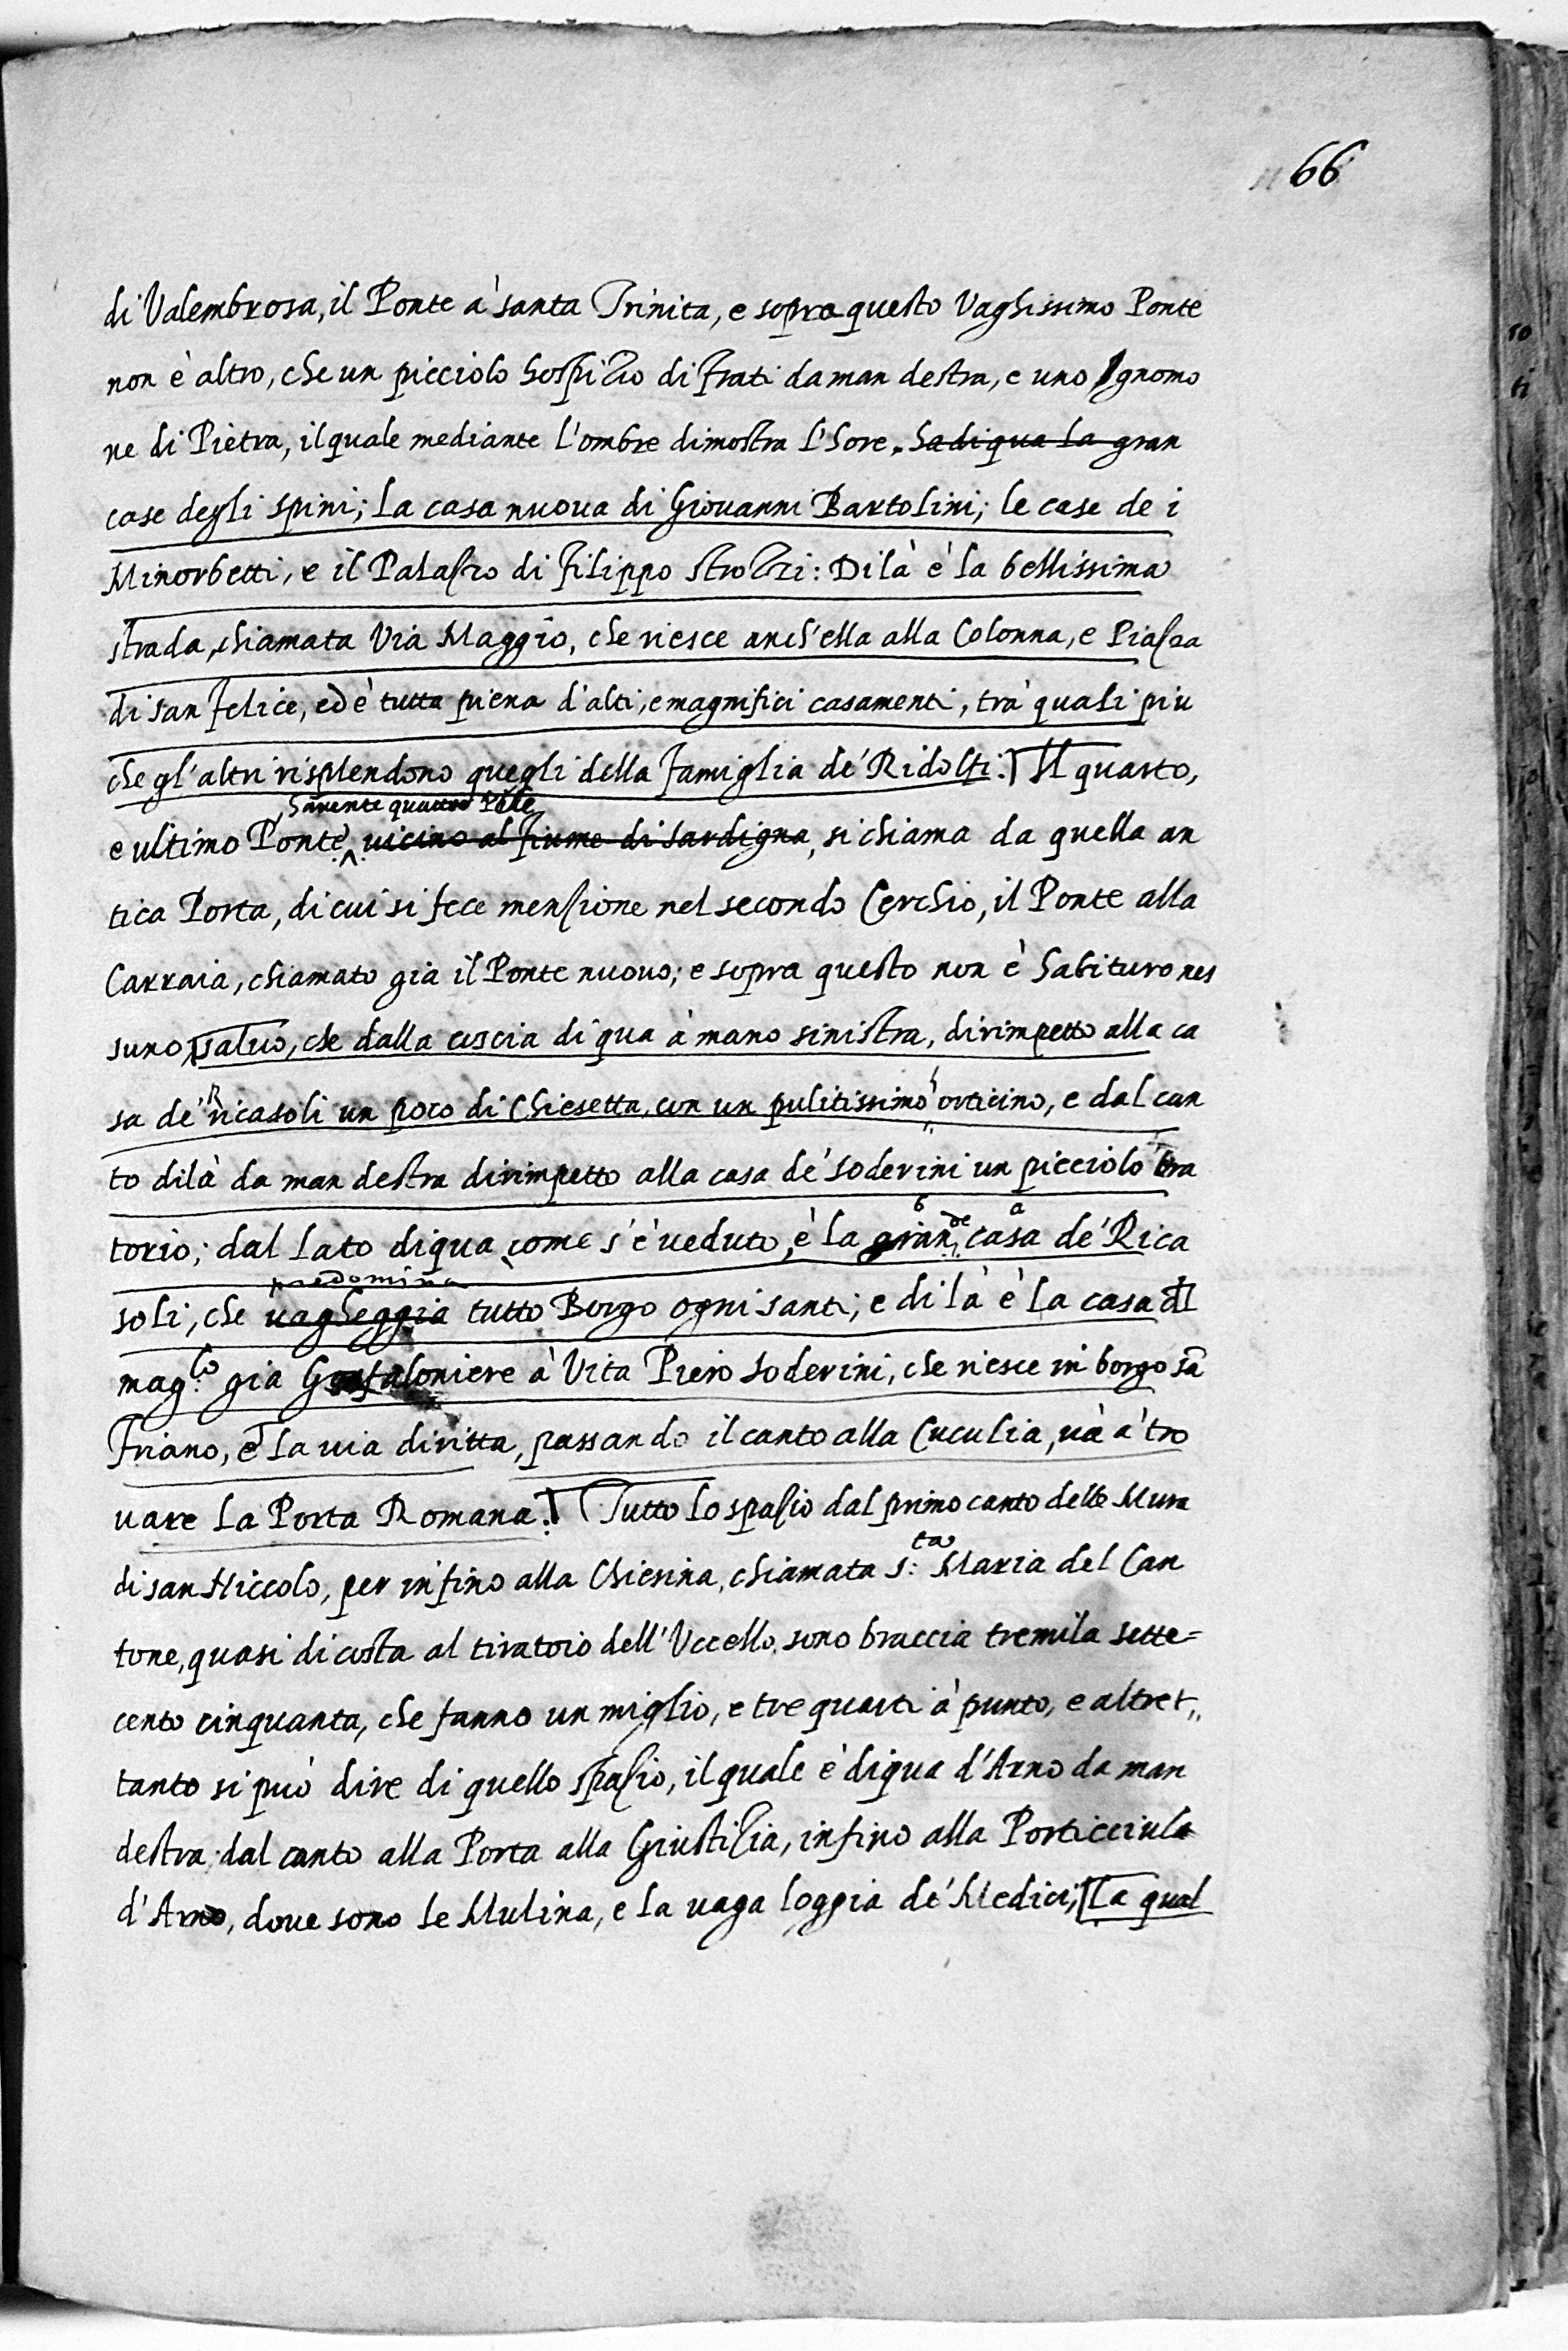 66
di Valembrosa, il Ponte à santa Trinita, e sopra questo Vaghissimo Ponte
non è altro, che un picciolo hospizio di frati da man destra, e uno Ignomo
ne di Pietra, il quale mediante l'ombre dimostra l'hore. ha di qua la gran
case degli spini; la casa nuova di Giovanni Bartolini; le case de i
Minorbetti, e il Palazzo di Filippo Strozzi: Di là è la bellissima
strada, chiamata Via Maggio, che riesce anch'ella alla Colonna, e Piazza
di san felice, ed è tutta piena d'alti, e magnifici casamenti, trà quali piu
che gl'altri risplendono quegli della famiglia de' Ridolfi. Il quarto,
havente quattro Pile
e ultimo Ponte, vicino al fiume di Sardigna, si chiama da quella an
tica Porta, di cui si fece menzione nel secondo Cerchio, il Ponte alla
Carraia, chiamato già il Ponte nuovo; e sopra questo non è habituro nes
suno, salvo, che dalla coscia di qua à mano sinistra, dirimpetto alla ca
sa de' Ricasoli un poco di Chiesetta, con un pulitissimo orticino, e dal can
to di là da man destra dirimpetto alla casa de' Soderini un picciolo Ora
torio; dal lato di qua, come s'è veduto, è la grande casa de' Rica
predomina
soli, che vagheggia tutto Borgo ogni santi; e di là è la casa del
mag.co già Gonfaloniere à Vita Piero Soderini, che riesce in borgo sã
Friano, e la via diritta, passando il canto alla Cuculia, và à tro
vare la Porta Romana. Tutto lo spazio dal primo canto delle Mura
di san Niccolo, per infino alla Chiesina, chiamata S:ta Maria del Can
tone, quasi di costa al tiratoio dell'Uccello, sono braccia tremila sette=
cento cinquanta, che fanno un miglio, e tre quarti à punto, e altret„
tanto si può dire di quello spazio, il quale è di qua d'Arno da man
destra dal canto alla Porta alla Giustizia, infino alla Porticciula
d'Arno, dove sono le Mulina, e la vaga loggia de' Medici; la qual